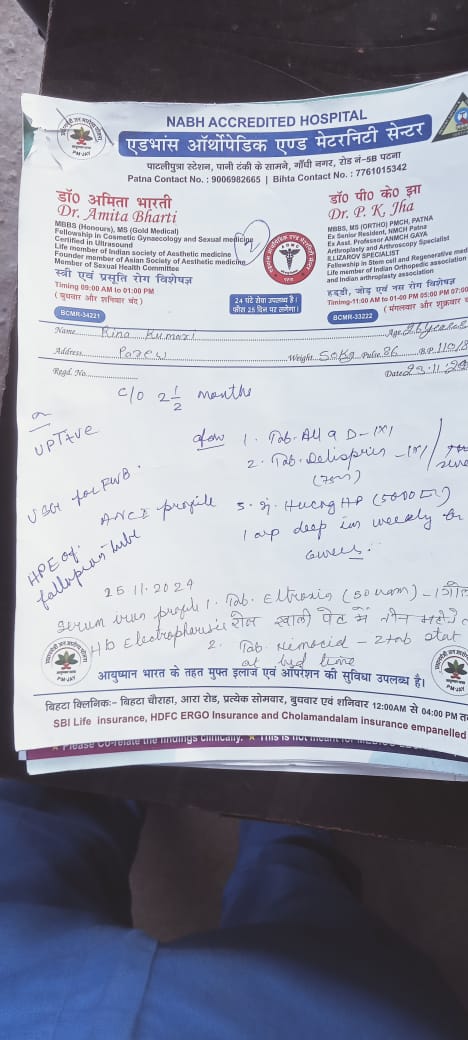 NABH ACCREDITED HOSPITAL
एडभांस ऑर्थोपेडिक एण्ड मेटरनिटी सेन्टर
पाटलीपुत्रा स्टेशन, पानी टंकी के सामने, गाँधी नगर, रोड नं-5B पटना
Patna Contact No. : 9006982665 | Bihta Contact No. : 7761015342
PM-JAY
डॉ० अमिता भारती
Dr. Amita Bharti
MBBS (Honours), MS (Gold Medical)
Fellowship in Cosmetic Gynaecology and Sexual medicine
Certified in Ultrasound
Life member of Indian society of Aesthetic medicine
Founder member of Asian Society of Aesthetic medicine
Member of Sexual Health Committee
स्त्री एवं प्रसूति रोग विशेषज्ञ
Timing 09:00 AM to 01:00 PM
( बुधवार और शनिवार बंद )
BCMR-34221
2
24 घंटे सेवा उपलब्ध है।
फीस 25 दिन पर लगेगा।
डॉ० पी० के० झा
Dr. P. K. Jha
MBBS, MS (ORTHO) PMCH, PATNA
Ex Senior Resident, NMCH Patna
Ex Asst. Professor ANMCH GAYA
Arthroplasty and Arthroscopy Specialist
ILLIZAROV SPECIALIST
Fellowship in Stem cell and Regenerative medi
Life member of Indian Orthopedic association
and Indian arthroplasty association
हड्डी, जोड़ एवं नस रोग विशेषज्ञ
Timing-11:00 AM to 01-09 PM 05:00 PM 07:0
( मंगलवार और शुक्रवार
BCMR-33222
Name Rina Kumari Age 26 years
Address Parew Weight 50kg Pulse 86 B.P. 110/8
Regd. No. Date 23.11.2
C/O 2 1/2 months
UPT +ve
1. Tab. All 9 D – 1x1
2. Tab. Delisprin – 1x1
(75m)
USG for FWB.
ANC profile 3. Inj. Hucog HP (5000 IU)
1 amp deep im weekly for
6 weeks.
HPE of.
fallopian tube
25.11.2024
Serum iron profile 1. Tab. Eltroxin (50 mcm) – 1 गोली
HB Electrophoresis रोज खाली पेट में तीन महीने
2. Tab. Nemocid – 2 tab stat
at bed time
PM-JAY
आयुष्मान भारत के तहत मुफ्त इलाज एवं ऑपरेशन की सुविधा उपलब्ध है।
PM-JAY
बिहटा क्लिनिकः- बिहटा चौराहा, आरा रोड, प्रत्येक सोमवार, बुधवार एवं शनिवार 12:00AM से 04:00 PM त
SBI Life insurance, HDFC ERGO Insurance and Cholamandalam insurance empanelled
Please Co-relate the findings clinically. ★ This is not meant for